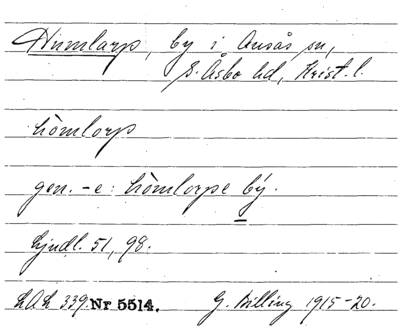 Humlarp, by i Ausås sn,
S. Åsbo hd, Krist. l.
hòmlorp
gen. -e: hòmlorpe bý.
Ljudl. 51, 98.
LAL 339. Nr 5514. G. Billing 1915-20.